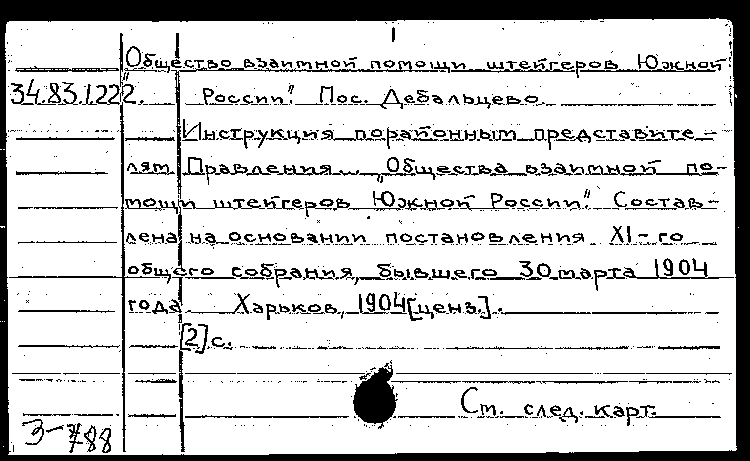 "Общество взаимной помощи штейгеров Южной
34.83.1.222. России". Пос. Дебальцево
Инструкция порайонным представите-
лям Правления... "Общества взаимной по-
мощи штейгеров Южной России". Состав-
лена на основании постановления XI-го
общего собрания, бывшего 30 марта 1904
года. Харьков, 1904 [ценз.].
[2] с.
См. след. карт.
З-788